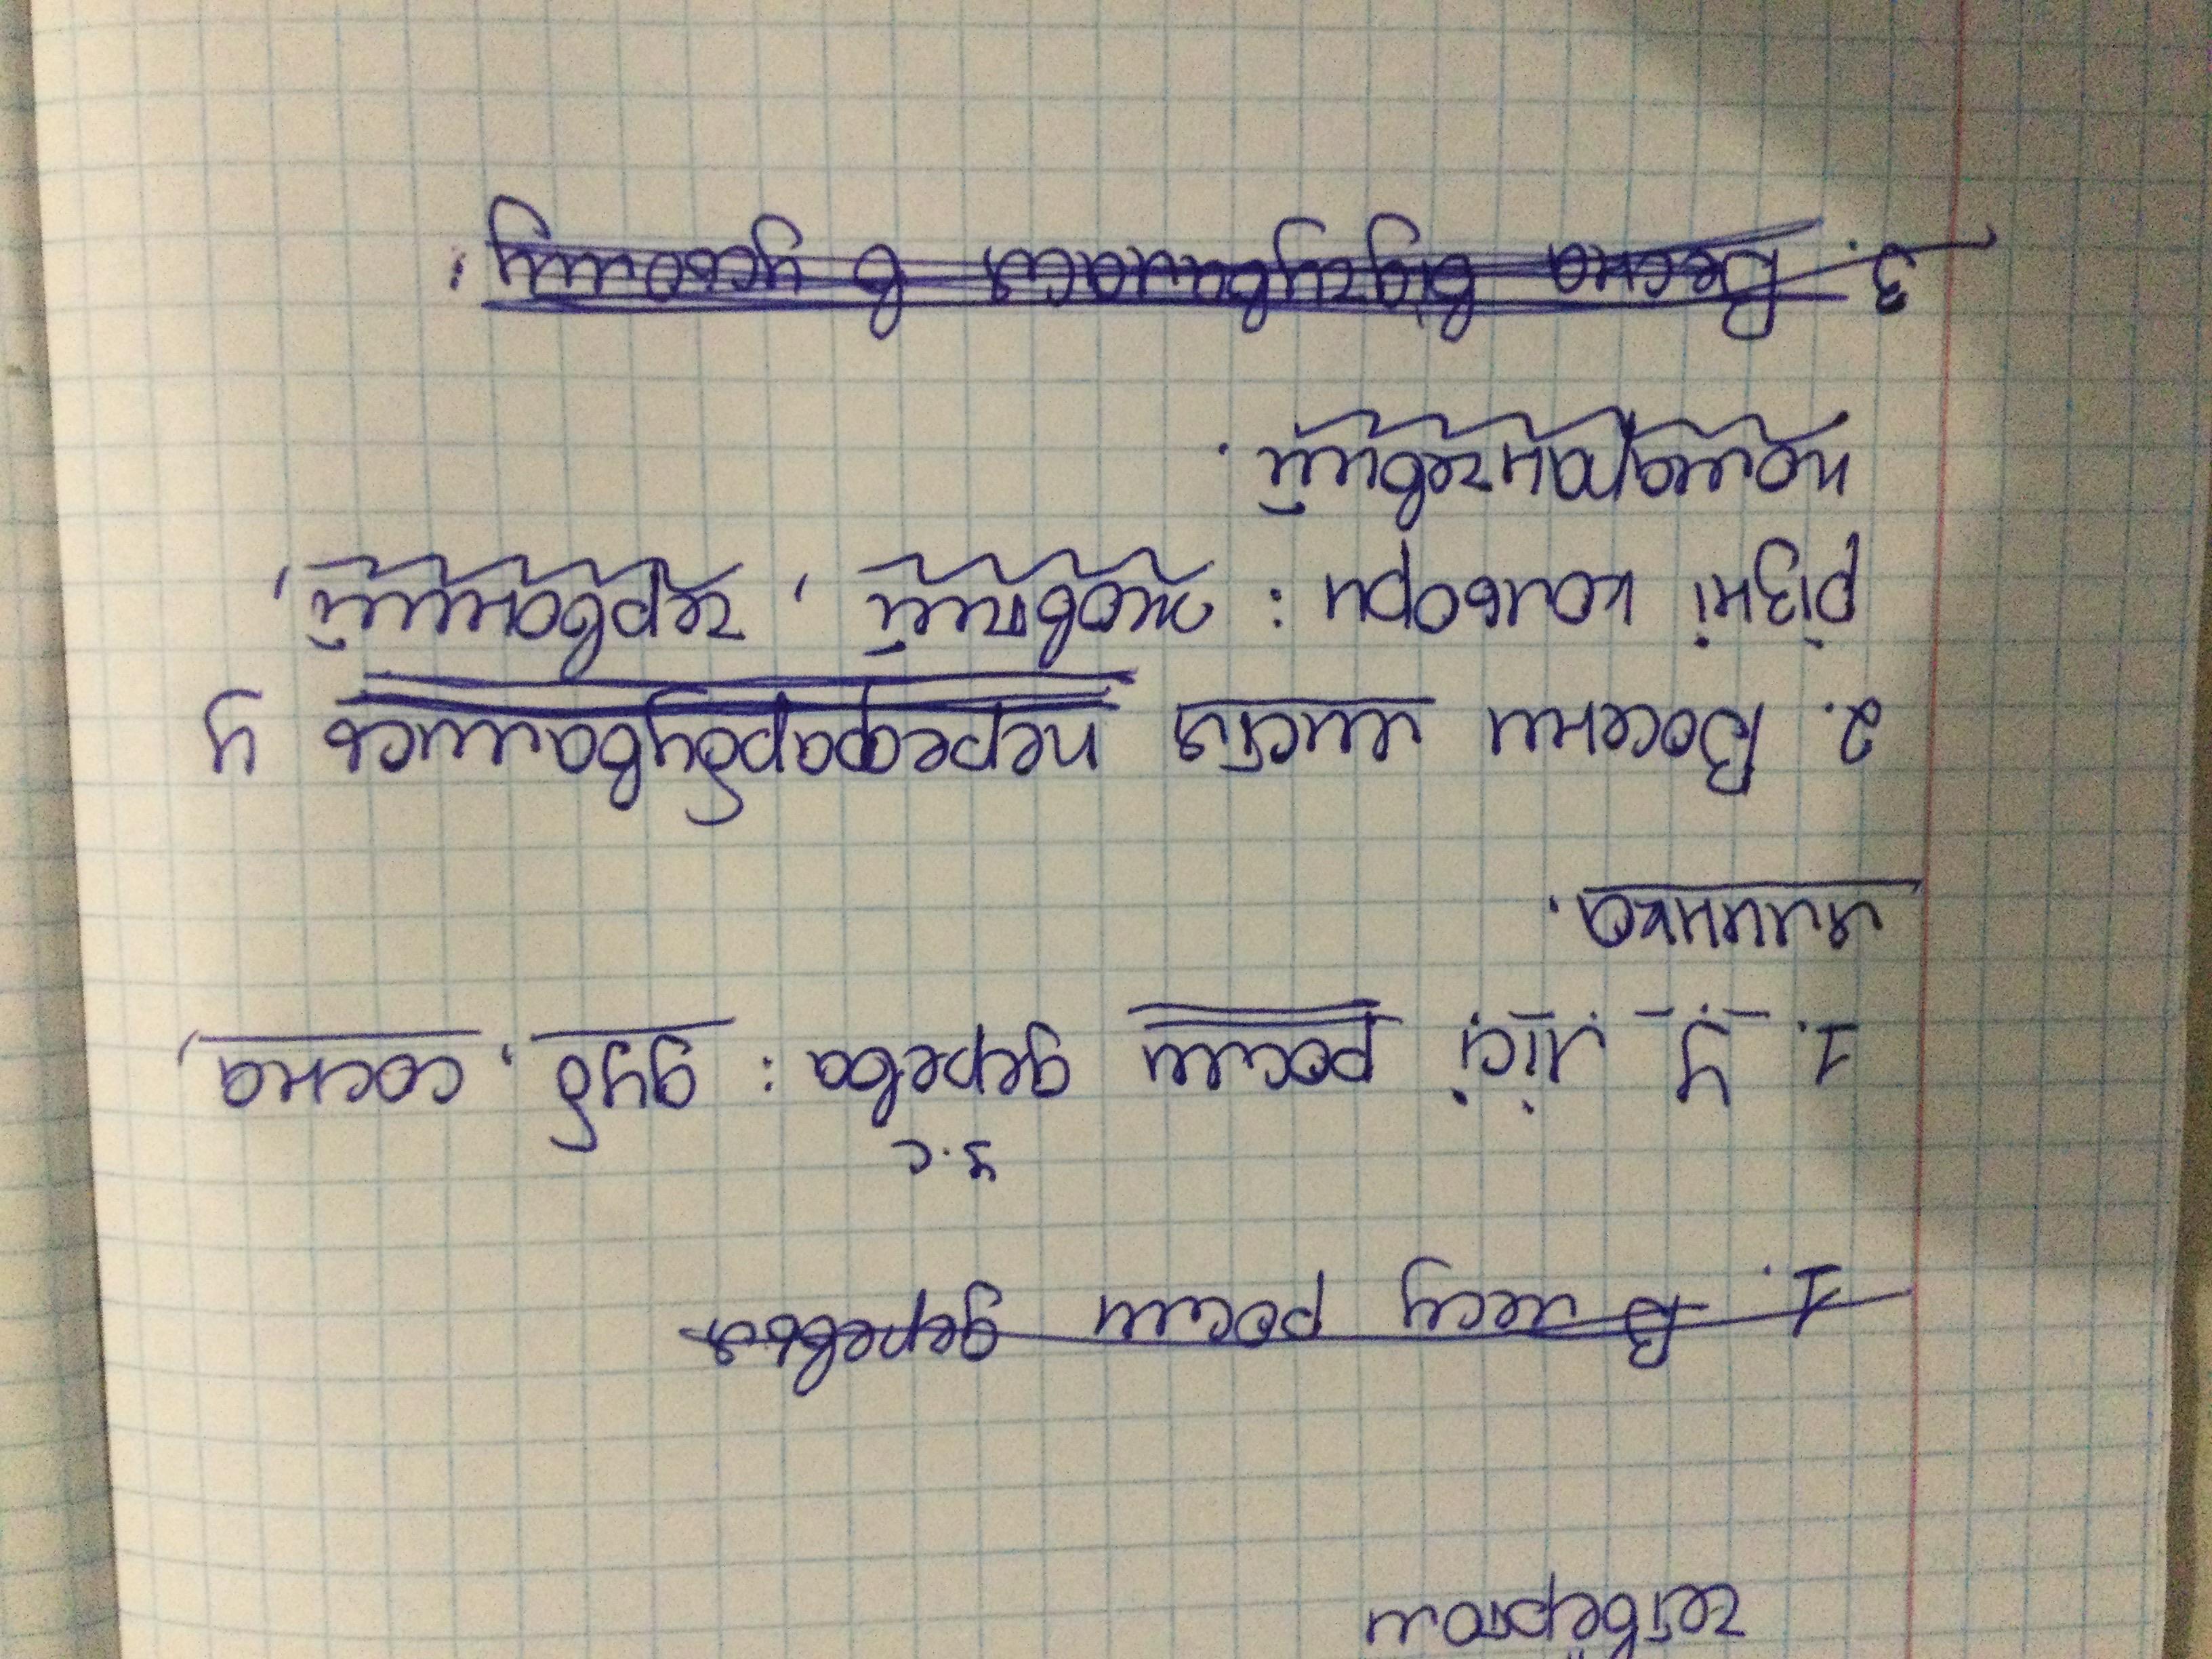 1. В лесу рости деревья
у.с
1. У лісі рости дерева : дуб, сосна,
ялинка.
2. Восени листя перефарбувались у
різні кольори : жовтий, червоний,
помаранчевий.
3. Весна відчувалася в усьому,